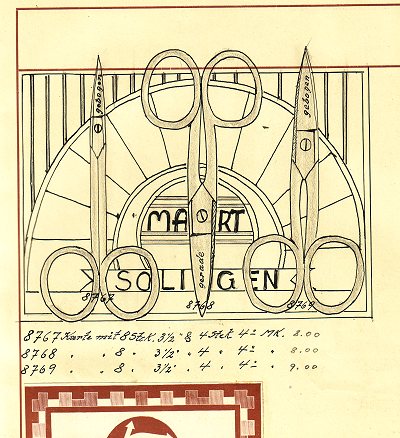 gebogen
gebogen
MA RT
gerade
SOLINGEN
8767
8768
8769
8767 Karte mit 8 Stck. 3½" & 4 Stck 4" MK. 8.00
8768 " " 8 " 3½" " 4 " 4" " 8.00
8769 " " 8 " 3½" " 4 " 4" " 9.00